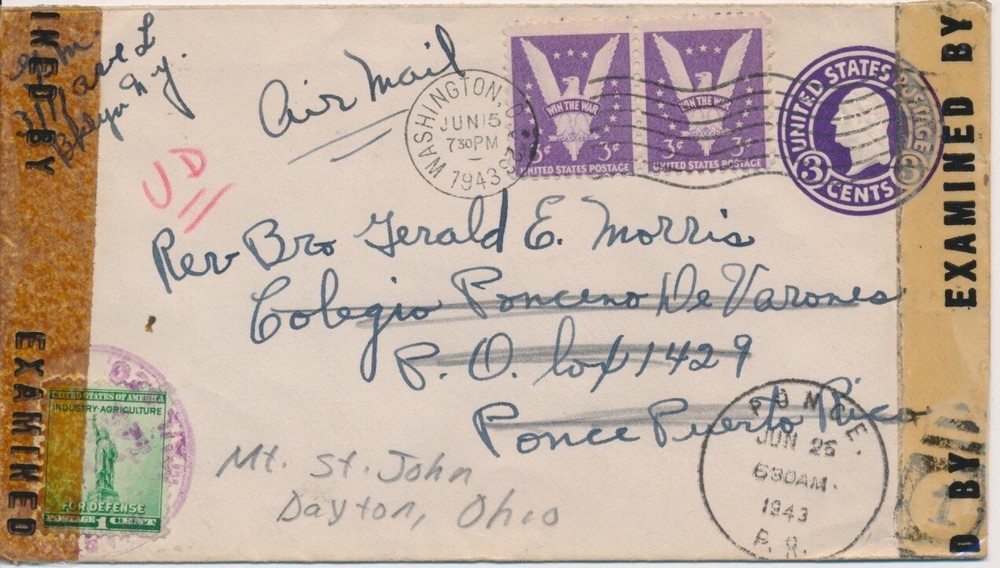 Air Mail
WASHINGTON, D.C.
JUN 15
730 PM
1943
WIN THE WAR
3¢ 3¢
UNITED STATES POSTAGE
WIN THE WAR
3¢ 3¢
UNITED STATES POSTAGE
UNITED STATES POSTAGE
3 CENTS 3
UD
Rev Bro Gerald E. Morris
Colegio Ponceno De Varones
P. O. box 1429
Ponce Puerto Rico
Mt. St. John
Dayton, Ohio
PONCE,
JUN 25
630AM.
1943
P. R.
UNITED STATES OF AMERICA
INDUSTRY·AGRICULTURE
FOR DEFENSE
POSTAGE 1 CENT
INED BY
EXAMINED
EXAMINED BY
D BY